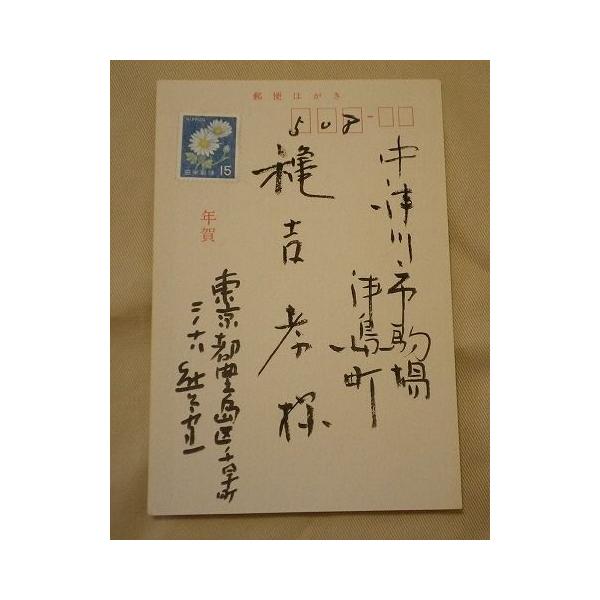 郵便はがき
508
NIPPON
15
日本郵便
年賀
中津川市駒場
津島町
吉孝様
東京都豊島区千早町